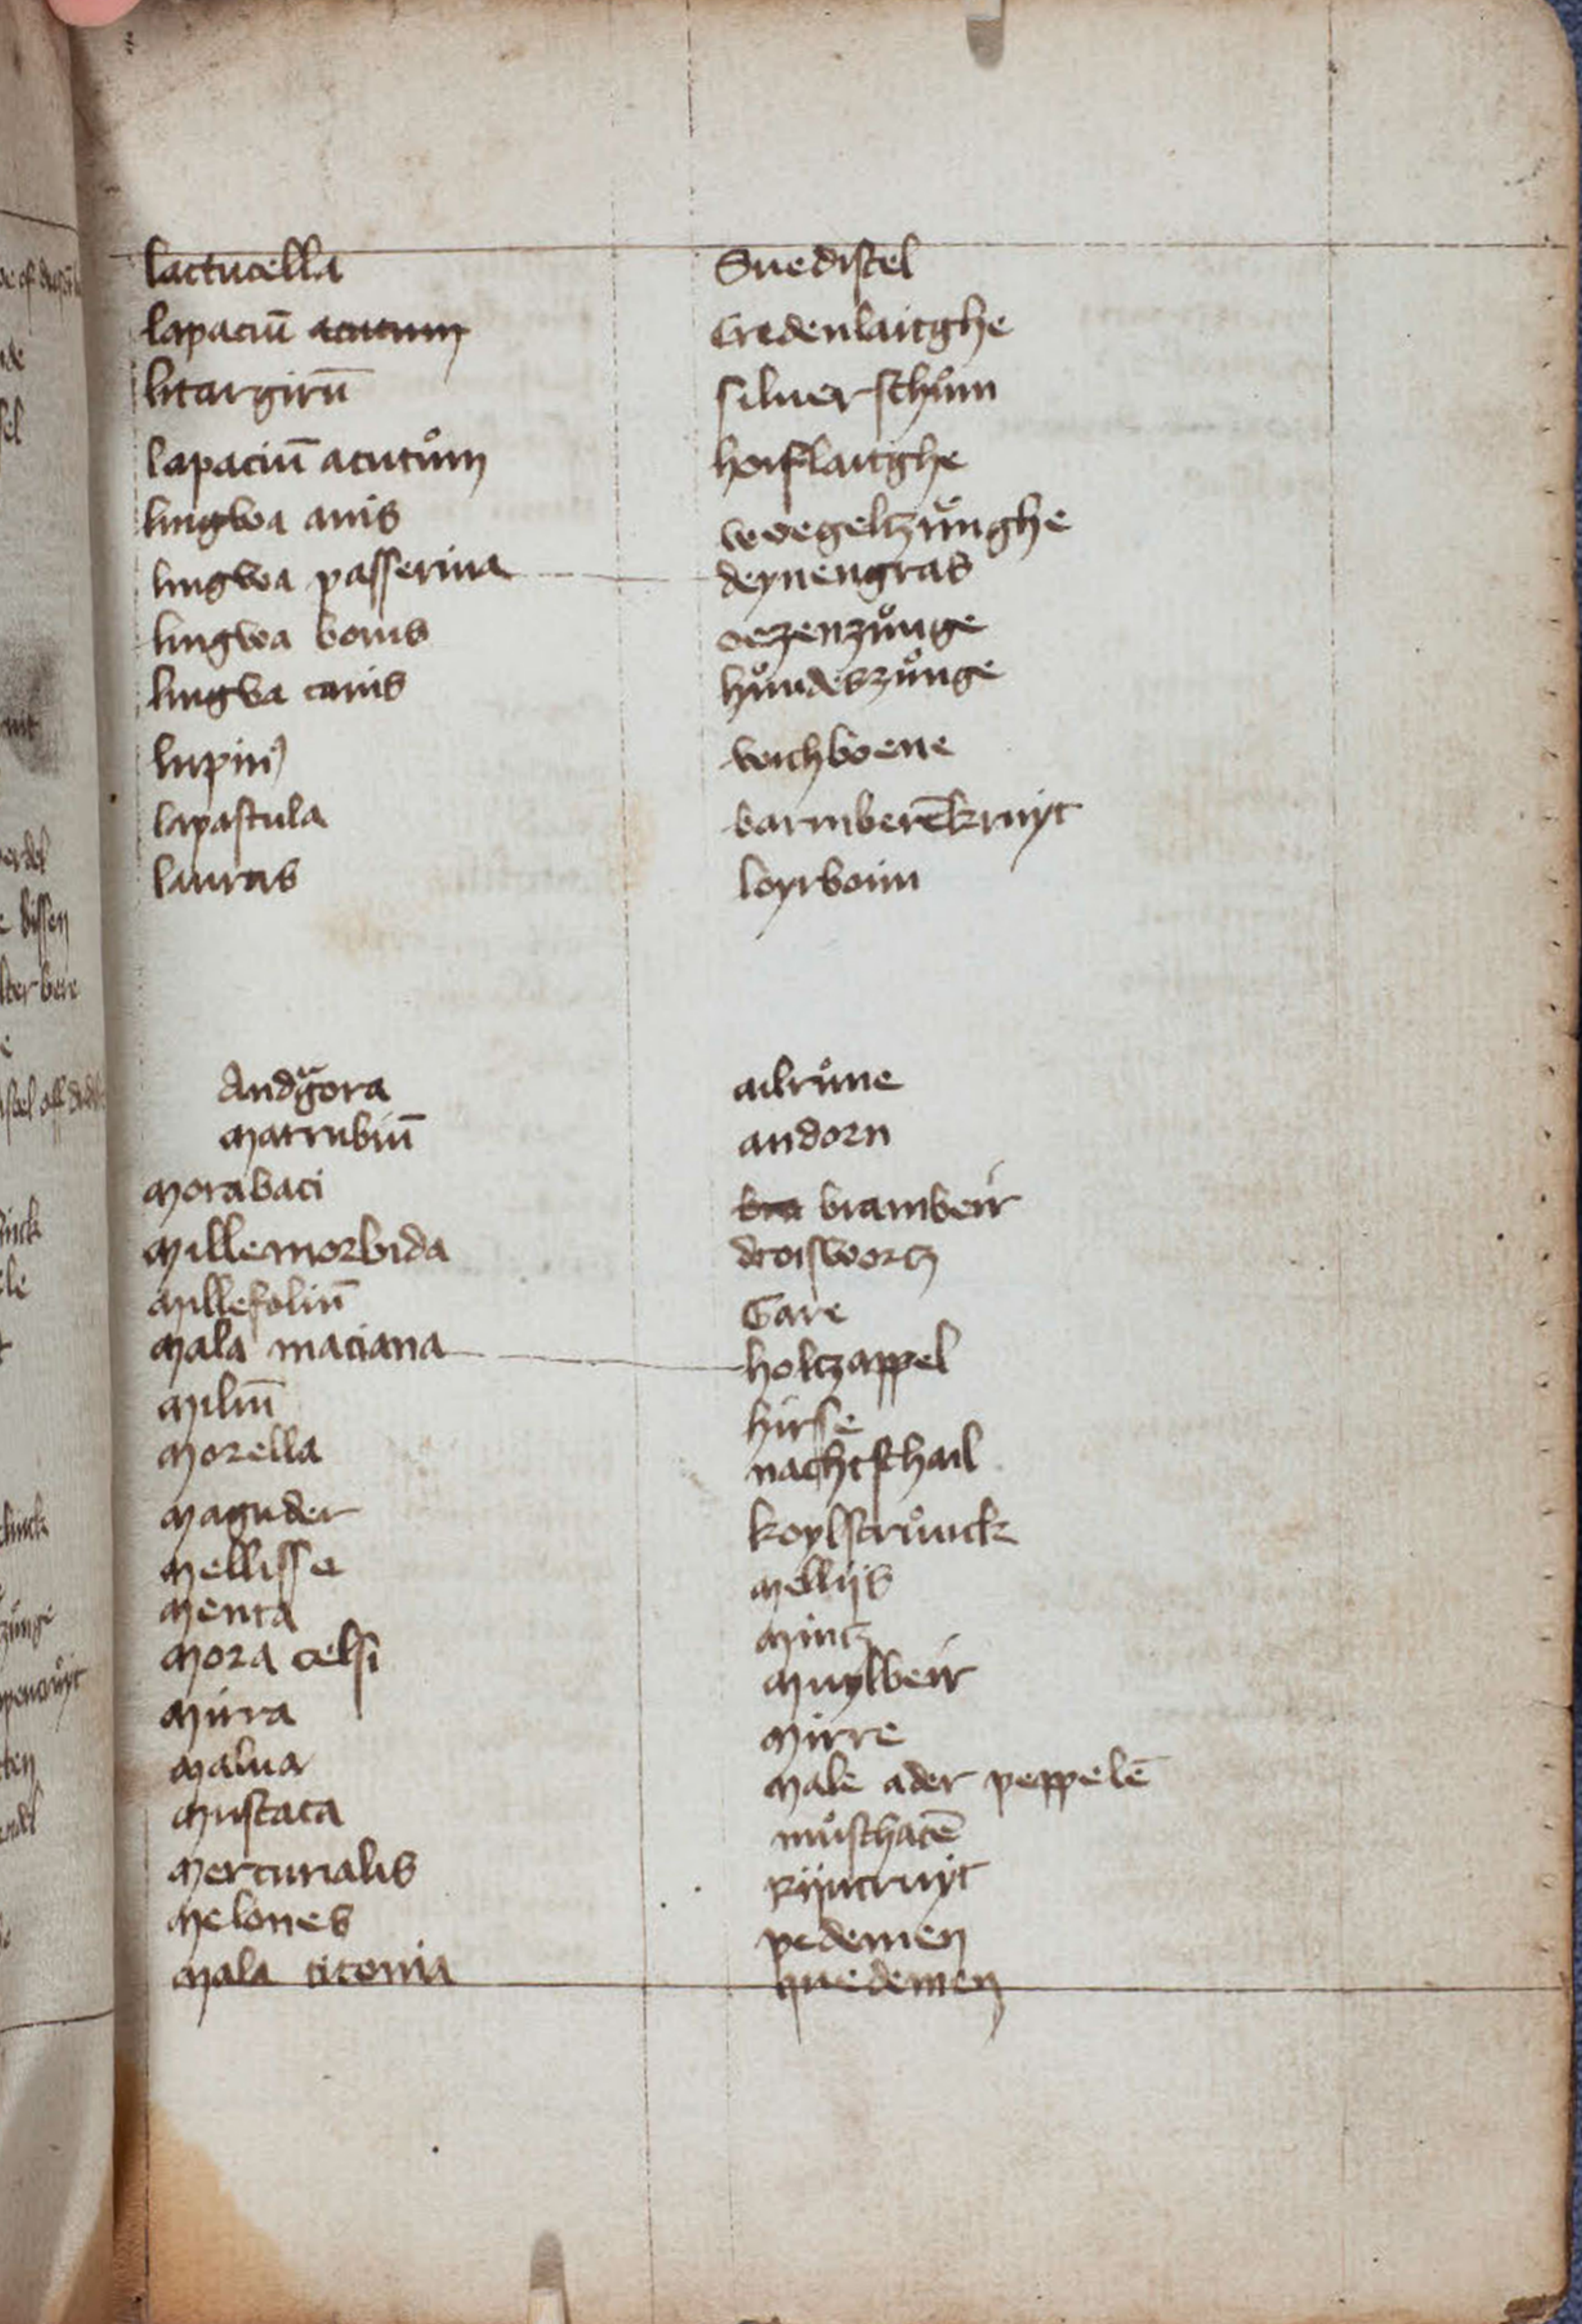 lactucella Suedistel
lapaciū acutum Credenlaitghe
litargirū siluer schům
lapaciū acutům hoiflaitghe
lingwa auis voegeltzůnghe
lingwa passerina deynengras
lingwa bouis oezenzůnge
lingwa canis hůndeszůnge
lupin) vichboene
lapastula barmberēkruyt
lauras loyrboim
Andgͣora alrůne
marrubiū andorn
morabaci bra brambeir
millemorbida droiswortz
millefoliū Gare
mala maciana holtzappel
miliū hirsse
morella nachtschail
maguder koylstrůnck
mellisse mellijs
menta mintz
mora celsi muylbeir
mirra mirre
malua male ader peppelē
muscata můschatē
mercurialis rijncruyt
melones pedemen
mala citonia quedemen